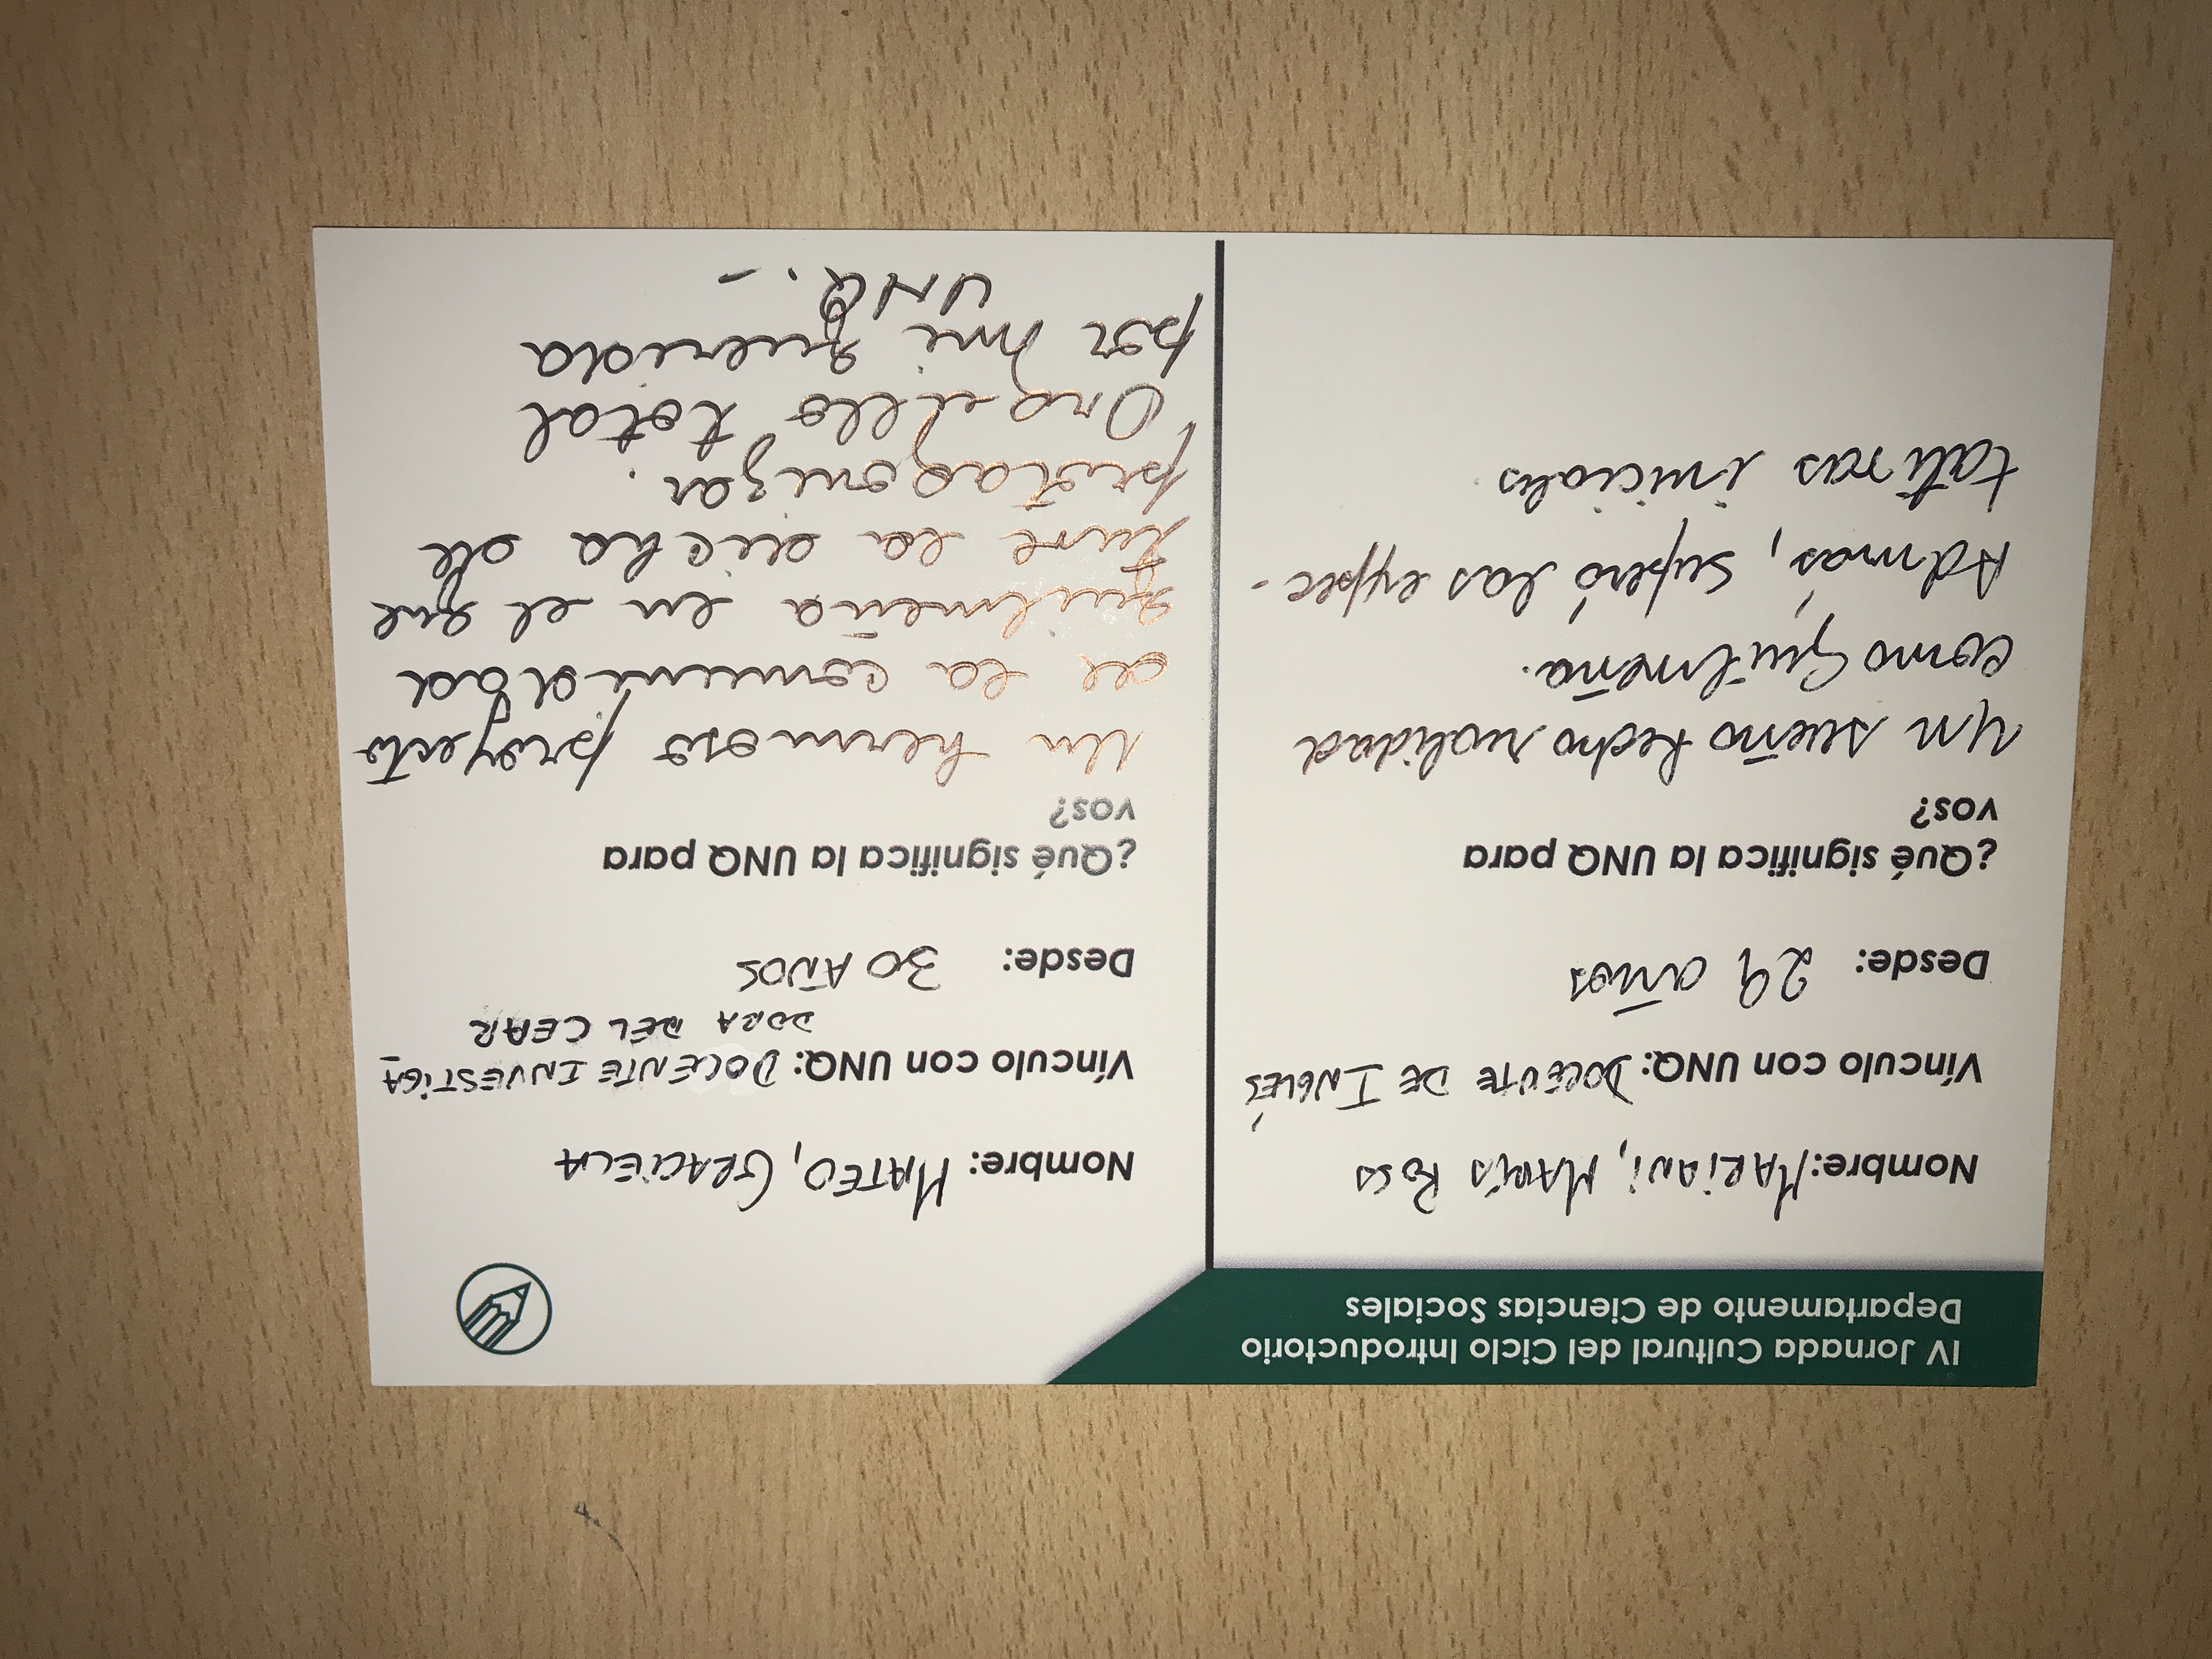 IV Jornada Cultural del Ciclo Introductorio
Departamento de Ciencias Sociales
Nombre: MARiANi, MARÍS ROSA
Vínculo con UNQ: DOCENTE DE INGLÉS
Desde: 29 años
¿Qué significa la UNQ para
vos?
Un sueño hecho realidad
como Quilmeña.
Además, superó las expec-
tativas iniciales.
Nombre: MATEO, GRACIELA
Vínculo con UNQ: DOCENTE INVESTIGA
DORA DEL CEAR
Desde: 30 AÑOS
¿Qué significa la UNQ para
vos?
Un hermoso proyecto
de la comunidad
quilmeña en el que
tuve la dicha de
protagonizar.
Orgullo total
por mi querida
UNQ.-